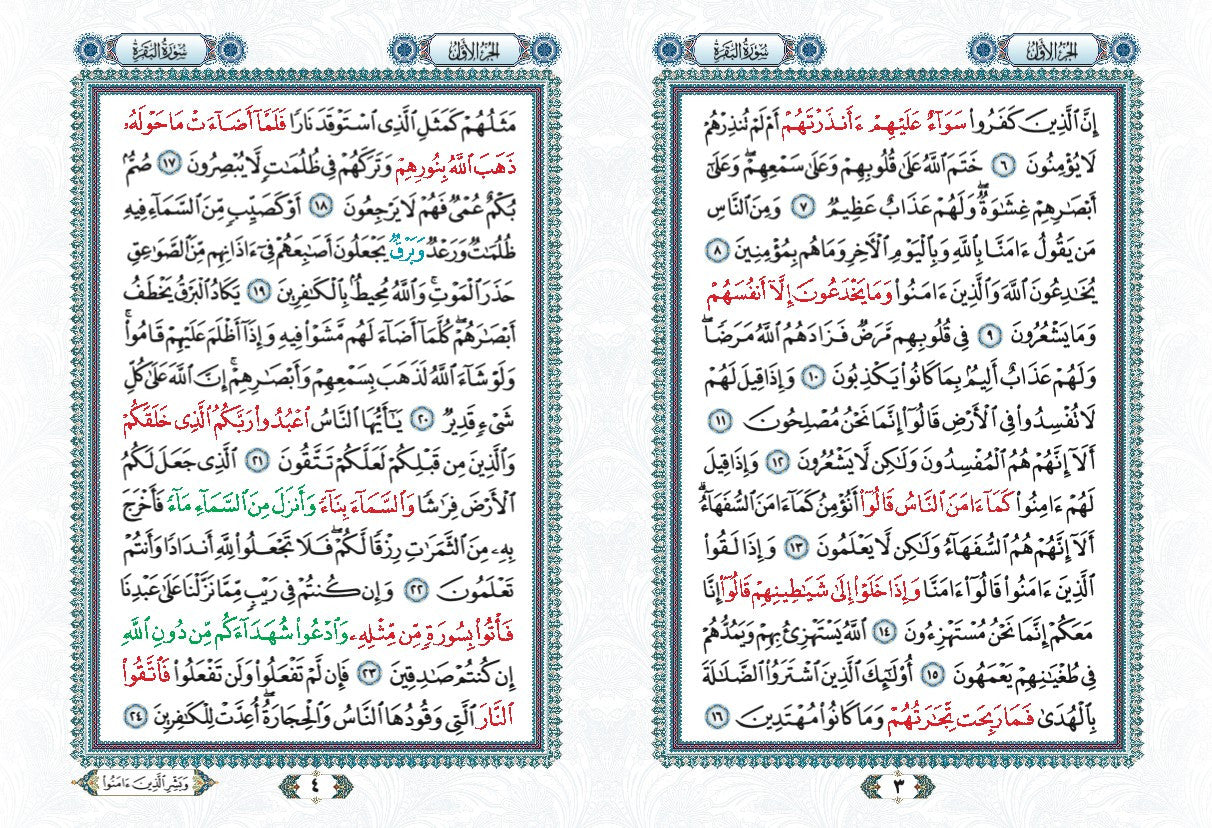 الجزء الأول
سورة البقرة
إِنَّ ٱلَّذِينَ كَفَرُوا۟ سَوَآءٌ عَلَيْهِمْ ءَأَنذَرْتَهُمْ أَمْ لَمْ تُنذِرْهُمْ
لَا يُؤْمِنُونَ ٦ خَتَمَ ٱللَّهُ عَلَىٰ قُلُوبِهِمْ وَعَلَىٰ سَمْعِهِمْ ۖ وَعَلَىٰٓ
أَبْصَٰرِهِمْ غِشَٰوَةٌ ۖ وَلَهُمْ عَذَابٌ عَظِيمٌ ٧ وَمِنَ ٱلنَّاسِ
مَن يَقُولُ ءَامَنَّا بِٱللَّهِ وَبِٱلْيَوْمِ ٱلْءَاخِرِ وَمَا هُم بِمُؤْمِنِينَ ٨
يُخَٰدِعُونَ ٱللَّهَ وَٱلَّذِينَ ءَامَنُوا۟ وَمَا يَخْدَعُونَ إِلَّآ أَنفُسَهُمْ
وَمَا يَشْعُرُونَ ٩ فِى قُلُوبِهِم مَّرَضٌ فَزَادَهُمُ ٱللَّهُ مَرَضًا ۖ
وَلَهُمْ عَذَابٌ أَلِيمٌۢ بِمَا كَانُوا۟ يَكْذِبُونَ ١٠ وَإِذَا قِيلَ لَهُمْ
لَا تُفْسِدُوا۟ فِى ٱلْأَرْضِ قَالُوٓا۟ إِنَّمَا نَحْنُ مُصْلِحُونَ ١١
أَلَآ إِنَّهُمْ هُمُ ٱلْمُفْسِدُونَ وَلَٰكِن لَّا يَشْعُرُونَ ١٢ وَإِذَا قِيلَ
لَهُمْ ءَامِنُوا۟ كَمَآ ءَامَنَ ٱلنَّاسُ قَالُوٓا۟ أَنُؤْمِنُ كَمَآ ءَامَنَ ٱلسُّفَهَآءُ ۗ
أَلَآ إِنَّهُمْ هُمُ ٱلسُّفَهَآءُ وَلَٰكِن لَّا يَعْلَمُونَ ١٣ وَإِذَا لَقُوا۟
ٱلَّذِينَ ءَامَنُوا۟ قَالُوٓا۟ ءَامَنَّا وَإِذَا خَلَوْا۟ إِلَىٰ شَيَٰطِينِهِمْ قَالُوٓا۟ إِنَّا
مَعَكُمْ إِنَّمَا نَحْنُ مُسْتَهْزِءُونَ ١٤ ٱللَّهُ يَسْتَهْزِئُ بِهِمْ وَيَمُدُّهُمْ
فِى طُغْيَٰنِهِمْ يَعْمَهُونَ ١٥ أُو۟لَٰٓئِكَ ٱلَّذِينَ ٱشْتَرَوُا۟ ٱلضَّلَٰلَةَ
بِٱلْهُدَىٰ فَمَا رَبِحَت تِّجَٰرَتُهُمْ وَمَا كَانُوا۟ مُهْتَدِينَ ١٦
٣
الجزء الأول
سورة البقرة
مَثَلُهُمْ كَمَثَلِ ٱلَّذِى ٱسْتَوْقَدَ نَارًا فَلَمَّآ أَضَآءَتْ مَا حَوْلَهُۥ
ذَهَبَ ٱللَّهُ بِنُورِهِمْ وَتَرَكَهُمْ فِى ظُلُمَٰتٍ لَّا يُبْصِرُونَ ١٧ صُمٌّۢ
بُكْمٌ عُمْىٌ فَهُمْ لَا يَرْجِعُونَ ١٨ أَوْ كَصَيِّبٍ مِّنَ ٱلسَّمَآءِ فِيهِ
ظُلُمَٰتٌ وَرَعْدٌ وَبَرْقٌ يَجْعَلُونَ أَصَٰبِعَهُمْ فِىٓ ءَاذَانِهِم مِّنَ ٱلصَّوَٰعِقِ
حَذَرَ ٱلْمَوْتِ ۚ وَٱللَّهُ مُحِيطٌۢ بِٱلْكَٰفِرِينَ ١٩ يَكَادُ ٱلْبَرْقُ يَخْطَفُ
أَبْصَٰرَهُمْ ۖ كُلَّمَآ أَضَآءَ لَهُم مَّشَوْا۟ فِيهِ وَإِذَآ أَظْلَمَ عَلَيْهِمْ قَامُوا۟ ۚ
وَلَوْ شَآءَ ٱللَّهُ لَذَهَبَ بِسَمْعِهِمْ وَأَبْصَٰرِهِمْ ۚ إِنَّ ٱللَّهَ عَلَىٰ كُلِّ
شَىْءٍ قَدِيرٌ ٢٠ يَٰٓأَيُّهَا ٱلنَّاسُ ٱعْبُدُوا۟ رَبَّكُمُ ٱلَّذِى خَلَقَكُمْ
وَٱلَّذِينَ مِن قَبْلِكُمْ لَعَلَّكُمْ تَتَّقُونَ ٢١ ٱلَّذِى جَعَلَ لَكُمُ
ٱلْأَرْضَ فِرَٰشًا وَٱلسَّمَآءَ بِنَآءً وَأَنزَلَ مِنَ ٱلسَّمَآءِ مَآءً فَأَخْرَجَ
بِهِۦ مِنَ ٱلثَّمَرَٰتِ رِزْقًا لَّكُمْ ۖ فَلَا تَجْعَلُوا۟ لِلَّهِ أَندَادًا وَأَنتُمْ
تَعْلَمُونَ ٢٢ وَإِن كُنتُمْ فِى رَيْبٍ مِّمَّا نَزَّلْنَا عَلَىٰ عَبْدِنَا
فَأْتُوا۟ بِسُورَةٍ مِّن مِّثْلِهِۦ وَٱدْعُوا۟ شُهَدَآءَكُم مِّن دُونِ ٱللَّهِ
إِن كُنتُمْ صَٰدِقِينَ ٢٣ فَإِن لَّمْ تَفْعَلُوا۟ وَلَن تَفْعَلُوا۟ فَٱتَّقُوا۟
ٱلنَّارَ ٱلَّتِى وَقُودُهَا ٱلنَّاسُ وَٱلْحِجَارَةُ ۖ أُعِدَّتْ لِلْكَٰفِرِينَ ٢٤
٤
وَبَشِّرِ ٱلَّذِينَ ءَامَنُوا۟